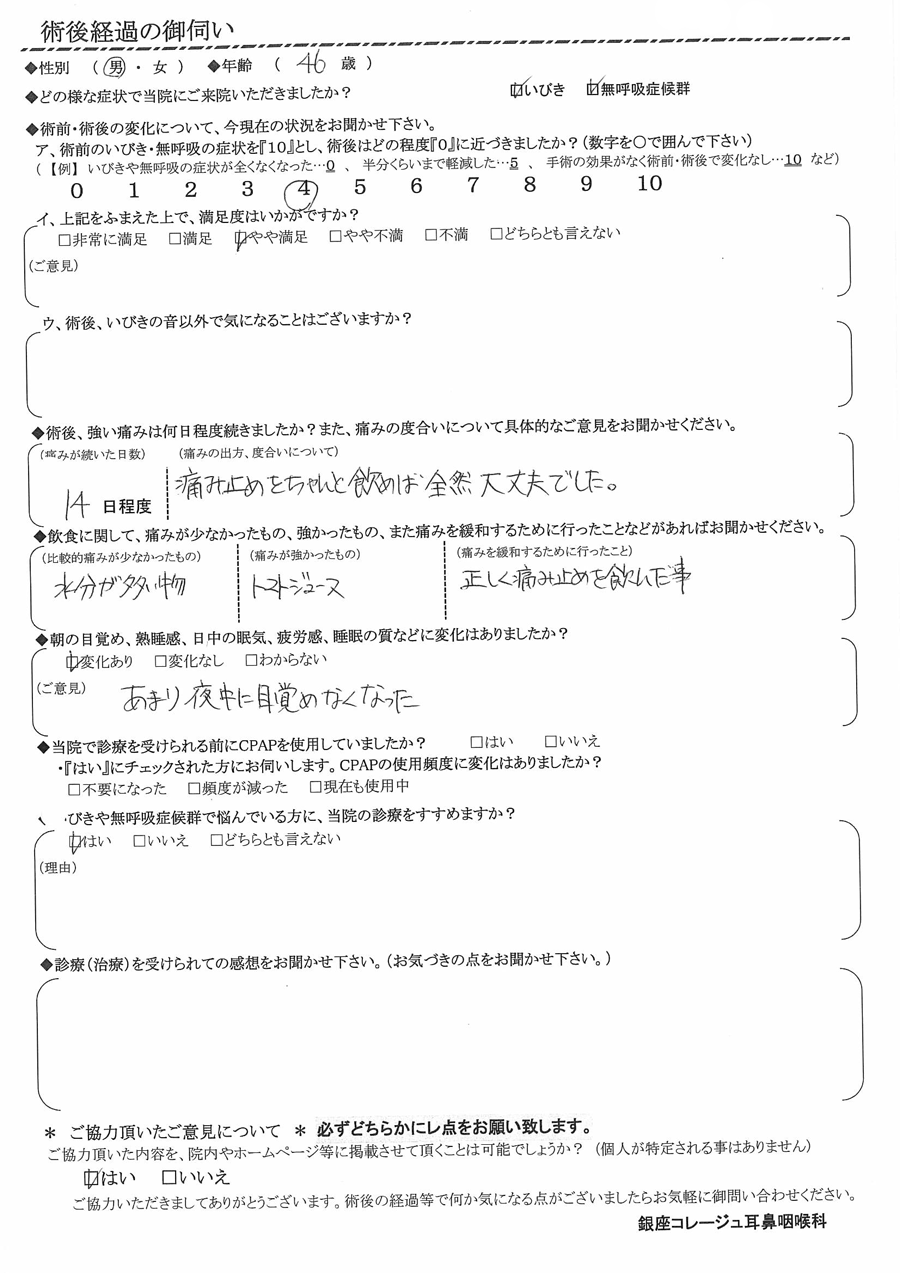 術後経過の御伺い
◆性別 ( 男 ・ 女 ) ◆年齢 ( 46 歳 )
◆どの様な症状で当院にご来院いただきましたか? ☑いびき ☑無呼吸症候群
◆術前・術後の変化について、今現在の状況をお聞かせ下さい。
ア、術前のいびき・無呼吸の症状を『10』とし、術後はどの程度『0』に近づきましたか?(数字を〇で囲んで下さい)
(【例】 いびきや無呼吸の症状が全くなくなった…0 、 半分くらいまで軽減した…5 、 手術の効果がなく術前・術後で変化なし…10 など)
0 1 2 3 4 5 6 7 8 9 10
イ、上記をふまえた上で、満足度はいかがですか?
□非常に満足 □満足 ☑やや満足 □やや不満 □不満 □どちらとも言えない
(ご意見)
ウ、術後、いびきの音以外で気になることはございますか?
◆術後、強い痛みは何日程度続きましたか?また、痛みの度合いについて具体的なご意見をお聞かせください。
(痛みが続いた日数) (痛みの出方、度合いについて)
14 日程度 痛み止めをちゃんと飲めば全然大丈夫でした。
◆飲食に関して、痛みが少なかったもの、強かったもの、また痛みを緩和するために行ったことなどがあればお聞かせください。
(比較的痛みが少なかったもの) (痛みが強かったもの) (痛みを緩和するために行ったこと)
水分が多い物 トマトジュース 正しく痛み止めを飲んだ事
◆朝の目覚め、熟睡感、日中の眠気、疲労感、睡眠の質などに変化はありましたか?
☑変化あり □変化なし □わからない
(ご意見) あまり夜中に目覚めなくなった
◆当院で診療を受けられる前にCPAPを使用していましたか? □はい □いいえ
・『はい』にチェックされた方にお伺いします。CPAPの使用頻度に変化はありましたか?
□不要になった □頻度が減った □現在も使用中
びきや無呼吸症候群で悩んでいる方に、当院の診療をすすめますか?
☑はい □いいえ □どちらとも言えない
(理由)
◆診療(治療)を受けられての感想をお聞かせ下さい。(お気づきの点をお聞かせ下さい。)
＊ ご協力頂いたご意見について ＊ 必ずどちらかにレ点をお願い致します。
ご協力頂いた内容を、院内やホームページ等に掲載させて頂くことは可能でしょうか? (個人が特定される事はありません)
☑はい □いいえ
ご協力いただきましてありがとうございます。術後の経過等で何か気になる点がございましたらお気軽に御問い合わせください。
銀座コレージュ耳鼻咽喉科